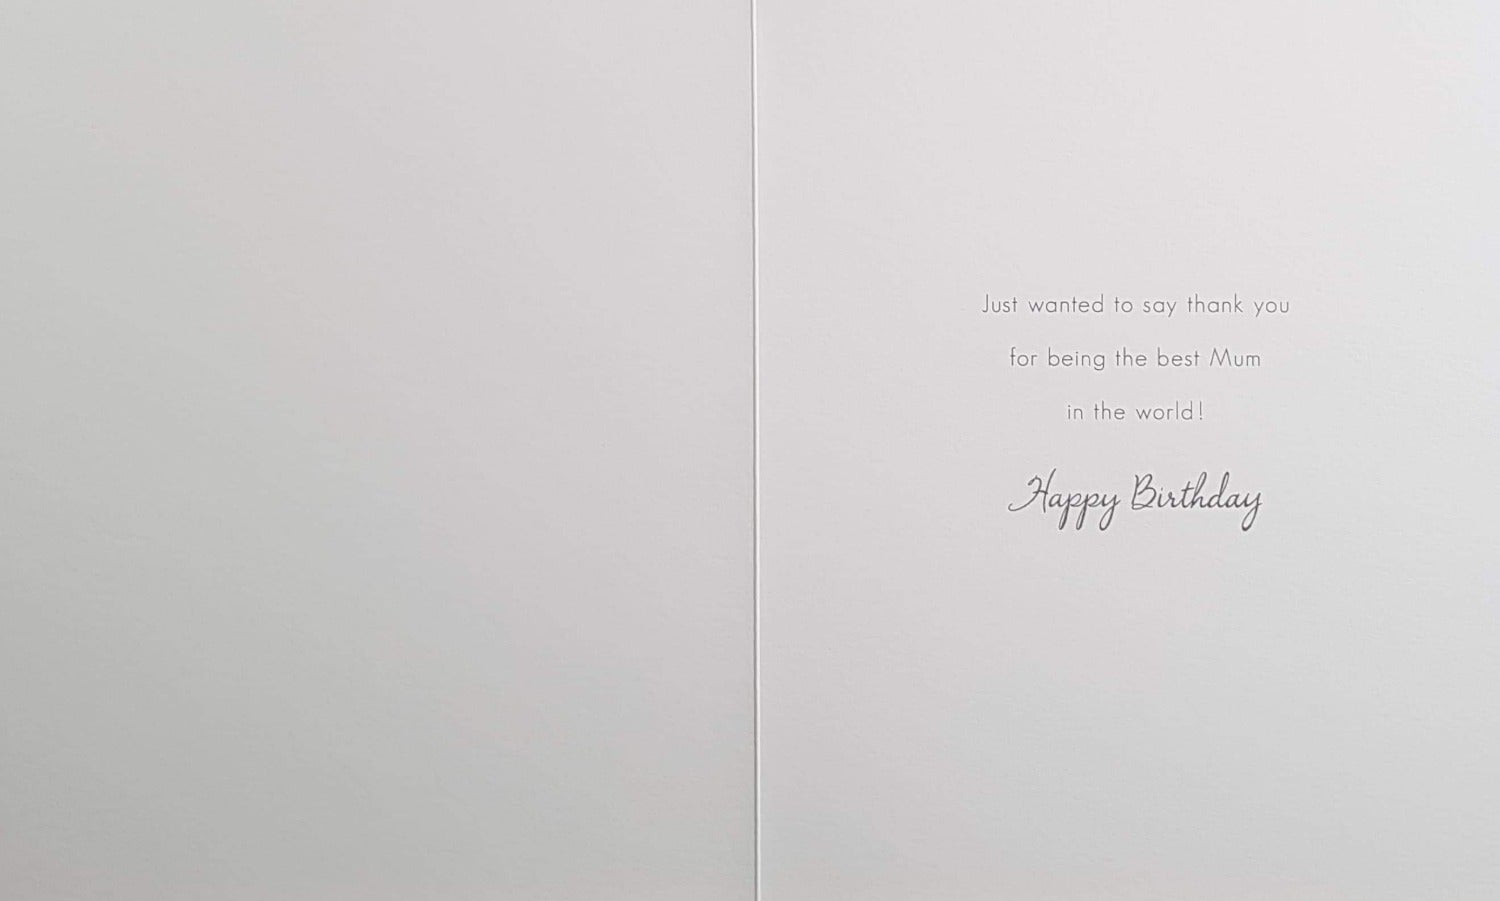 Just wanted to say thank you
for being the best Mum
in the world!
Happy Birthday